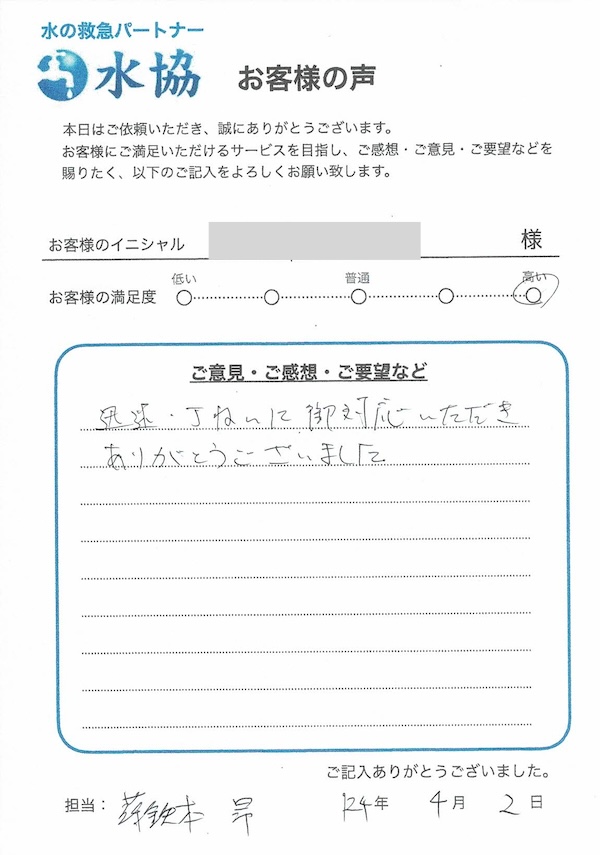 水の救急パートナー
水協 お客様の声
本日はご依頼いただき、誠にありがとうございます。
お客様にご満足いただけるサービスを目指し、ご感想・ご意見・ご要望などを
賜りたく、以下のご記入をよろしくお願い致します。
お客様のイニシャル 様
低い 普通 高い
お客様の満足度
ご意見・ご感想・ご要望など
迅速・丁ねいに御対応いただき
ありがとうございました
ご記入ありがとうございました。
担当: 本 昴 24年 4月 2日